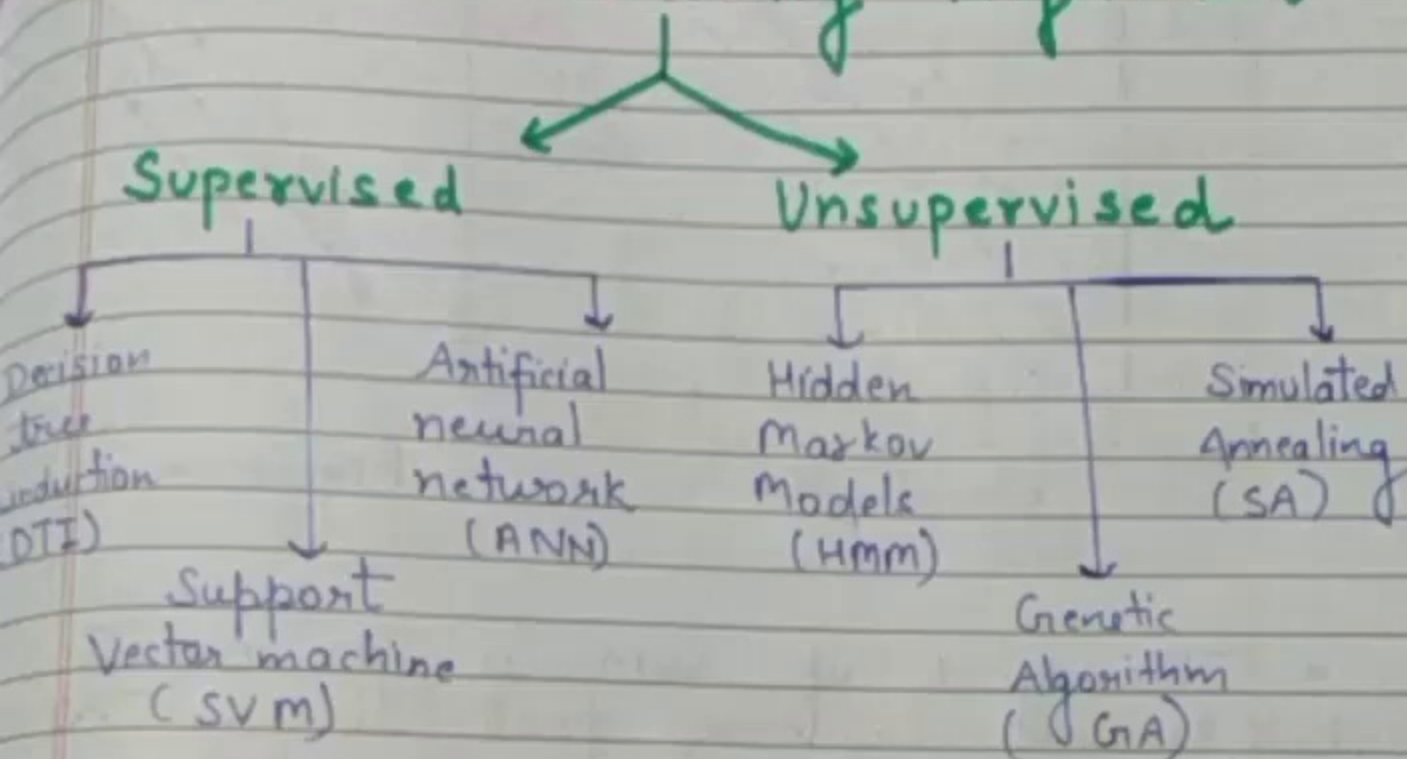 Supervised
Unsupervised
Decision
tree
induction
(DTI)
Support
Vector machine
(SVM)
Artificial
neural
network
(ANN)
Hidden
Markov
Models
(HMM)
Genetic
Algorithm
(GA)
Simulated
Annealing
(SA)